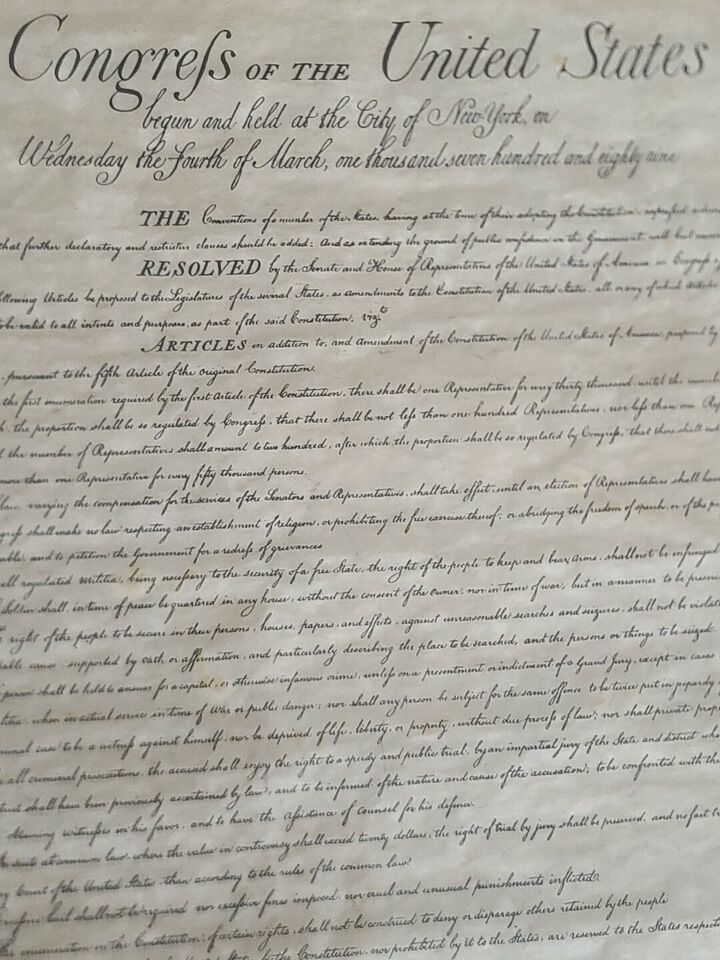 Congreſs OF THE United States
begun and held at the City of New-York, on
Wednesday the fourth of March, one thousand seven hundred and eighty nine
THE Conventions of a number of the States, having at the time of their adopting the Constitution, expressed a
that further declaratory and restrictive clauses should be added: And as extending the ground of public confidence in the Government, will best
RESOLVED by the Senate and House of Representatives of the United States of America in Congreſs
ollowing Articles be proposed to the Legislatures of the several States, as amendments to the Constitution of the United States, all or any of which articles
to be valid to all intents and purposes, as part of the said Constitution; vizt
ARTICLES in addition to, and Amendment of the Constitution of the United States of America, proposed by
pursuant to the fifth Article of the original Constitution.
the first enumeration required by the first Article of the Constitution, there shall be one Representative for every thirty thousand, until the number
the proportion shall be so regulated by Congreſs, that there shall be not leſs than one hundred Representatives, nor leſs than one Rep
the number of Representatives shall amount to two hundred, after which the proportion shall be so regulated by Congreſs, that there shall not
more than one Representative for every fifty thousand persons.
law, varying the compensation for the services of the Senators and Representatives, shall take effect, until an election of Representatives shall have
greſs shall make no law respecting an establishment of religion, or prohibiting the free exercise thereof; or abridging the freedom of speech, or of the pr
able, and to petition the Government for a redreſs of grievances
ell regulated Militia, being neceſsary to the security of a free State, the right of the people to keep and bear Arms, shall not be infringed
Soldier shall, in time of peace be quartered in any house, without the consent of the Owner, nor in time of war, but in a manner to be prescr
right of the people to be secure in their persons, houses, papers, and effects, against unreasonable searches and seizures, shall not be violat
able cause, supported by Oath or affirmation, and particularly describing the place to be searched, and the persons or things to be seized
person shall be held to answer for a capital, or otherwise infamous crime, unleſs on a presentment or indictment of a Grand Jury, except in cases
litia, when in actual service in time of War or public danger; nor shall any person be subject for the same offence to be twice put in jeopardy
minal case to be a witneſs against himself, nor be deprived of life, liberty, or property, without due proceſs of law; nor shall private prop
all criminal prosecutions, the accused shall enjoy the right to a speedy and public trial, by an impartial jury of the State and district whe
trict shall have been previously ascertained by law, and to be informed of the nature and cause of the accusation; to be confronted with the
obtaining witneſses in his favor, and to have the aſsistance of counsel for his defence.
In suits at common law, where the value in controversy shall exceed twenty dollars, the right of trial by jury shall be preserved, and no fact
ny Court of the United States, than according to the rules of the common law.
Exceſsive bail shall not be required nor exceſsive fines imposed, nor cruel and unusual punishments inflicted.
The enumeration in the Constitution, of certain rights, shall not be construed to deny or disparage others retained by the people
by the Constitution, nor prohibited by it to the States, are reserved to the States respecti